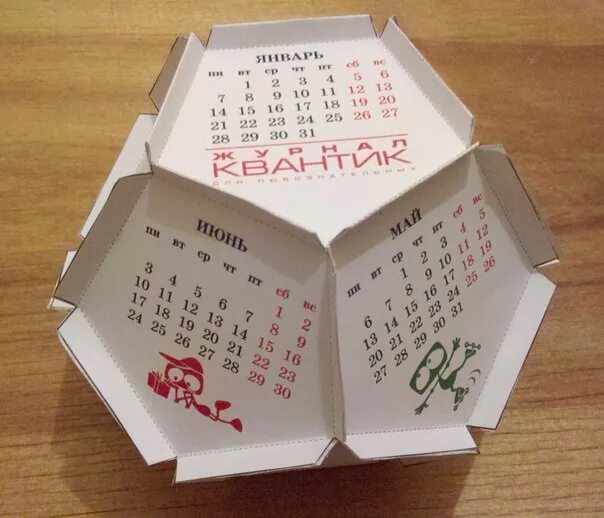 ЯНВАРЬ
пн вт ср чт пт сб вс
1 2 3 4 5 6
7 8 9 10 11 12 13
14 15 16 17 18 19 20
21 22 23 24 25 26 27
28 29 30 31
ЖУРНАЛ
КВАНТИК
ДЛЯ ЛЮБОЗНАТЕЛЬНЫХ
ИЮНЬ
пн вт ср чт пт сб вс
1 2
3 4 5 6 7 8 9
10 11 12 13 14 15 16
17 18 19 20 21 22 23
24 25 26 27 28 29 30
МАЙ
пн вт ср чт пт сб вс
1 2 3 4 5
6 7 8 9 10 11 12
13 14 15 16 17 18 19
20 21 22 23 24 25 26
27 28 29 30 31